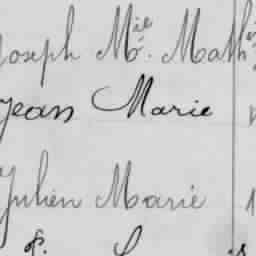 Joseph Mie. Math
Jean Marie
Julien Marie